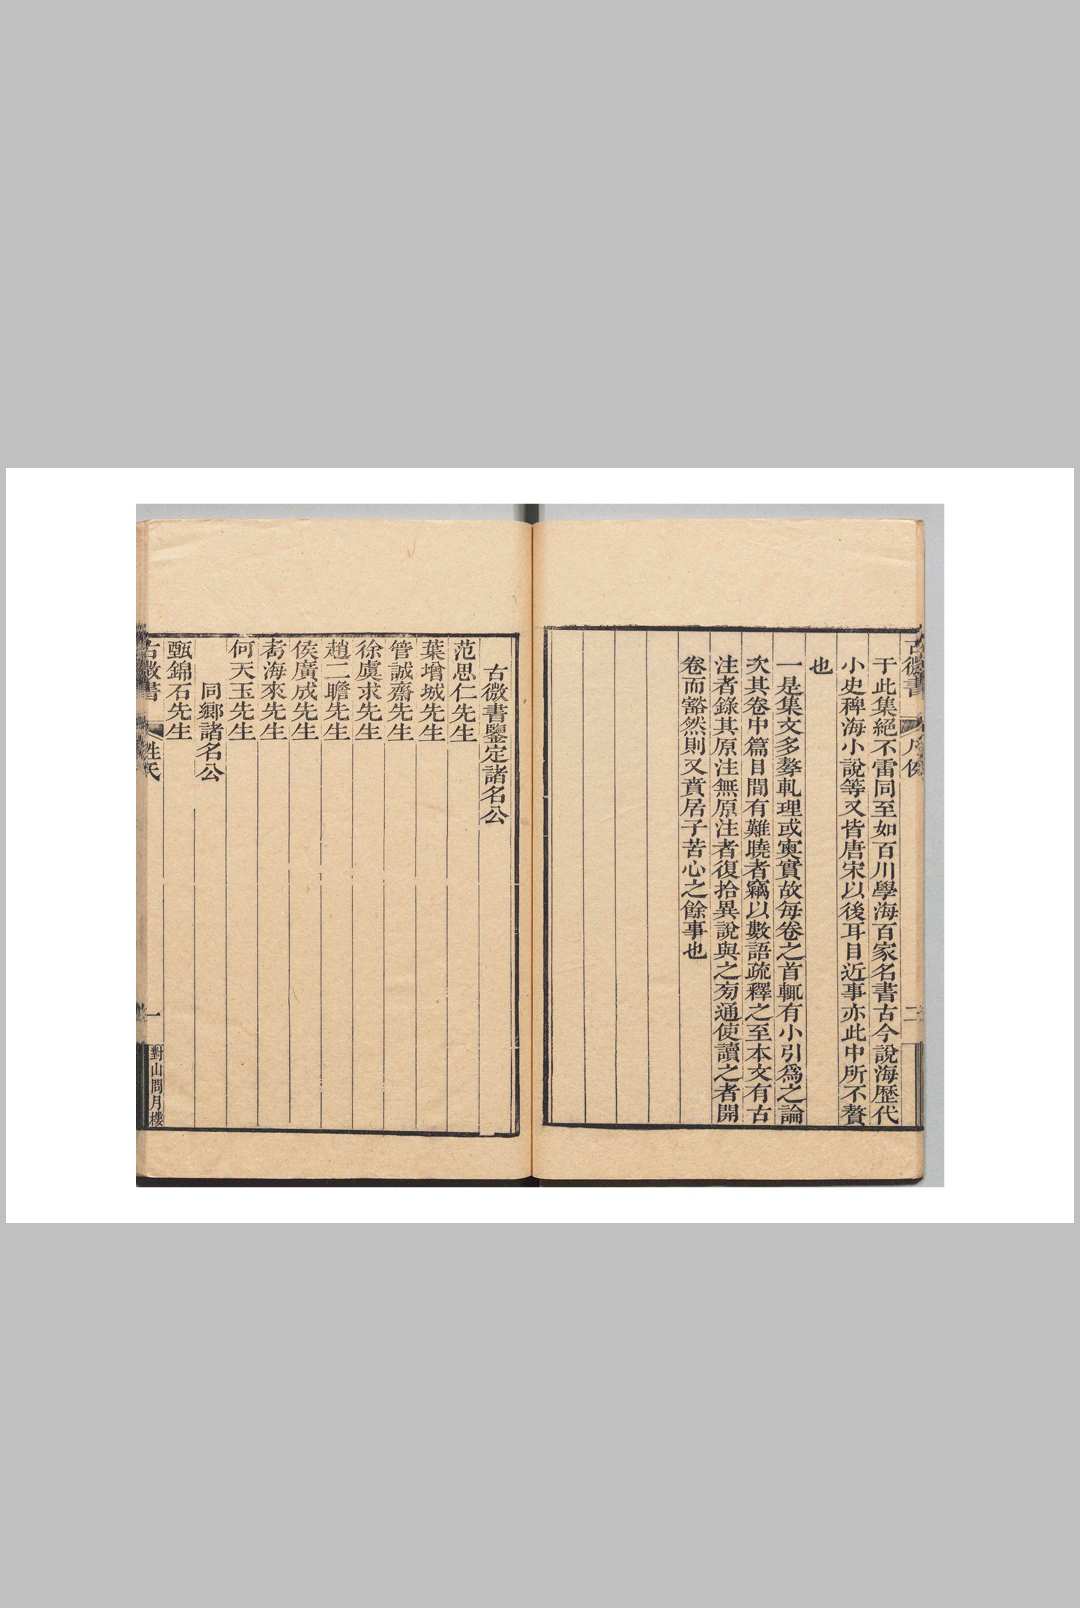 古微書
凡例
二
于此集絕不雷同至如百川學海百家名書古今說海歷代
小史稗海小說等又皆唐宋以後耳目近事亦此中所不贅
也
一是集文多摮軋理或寏實故每卷之首輒有小引為之論
次其卷中篇目間有難曉者竊以數語疏釋之至本文有古
注者錄其原注無原注者復拾異說與之旁通使讀之者開
卷而豁然則又賁居子苦心之餘事也
古微書鑒定諸名公
范思仁先生
葉增城先生
管誠齋先生
徐虞求先生
趙二瞻先生
侯廣成先生
海來先生
何天玉先生
同鄉諸名公
甄錦石先生
古微書
姓氏
一
對山問月樓